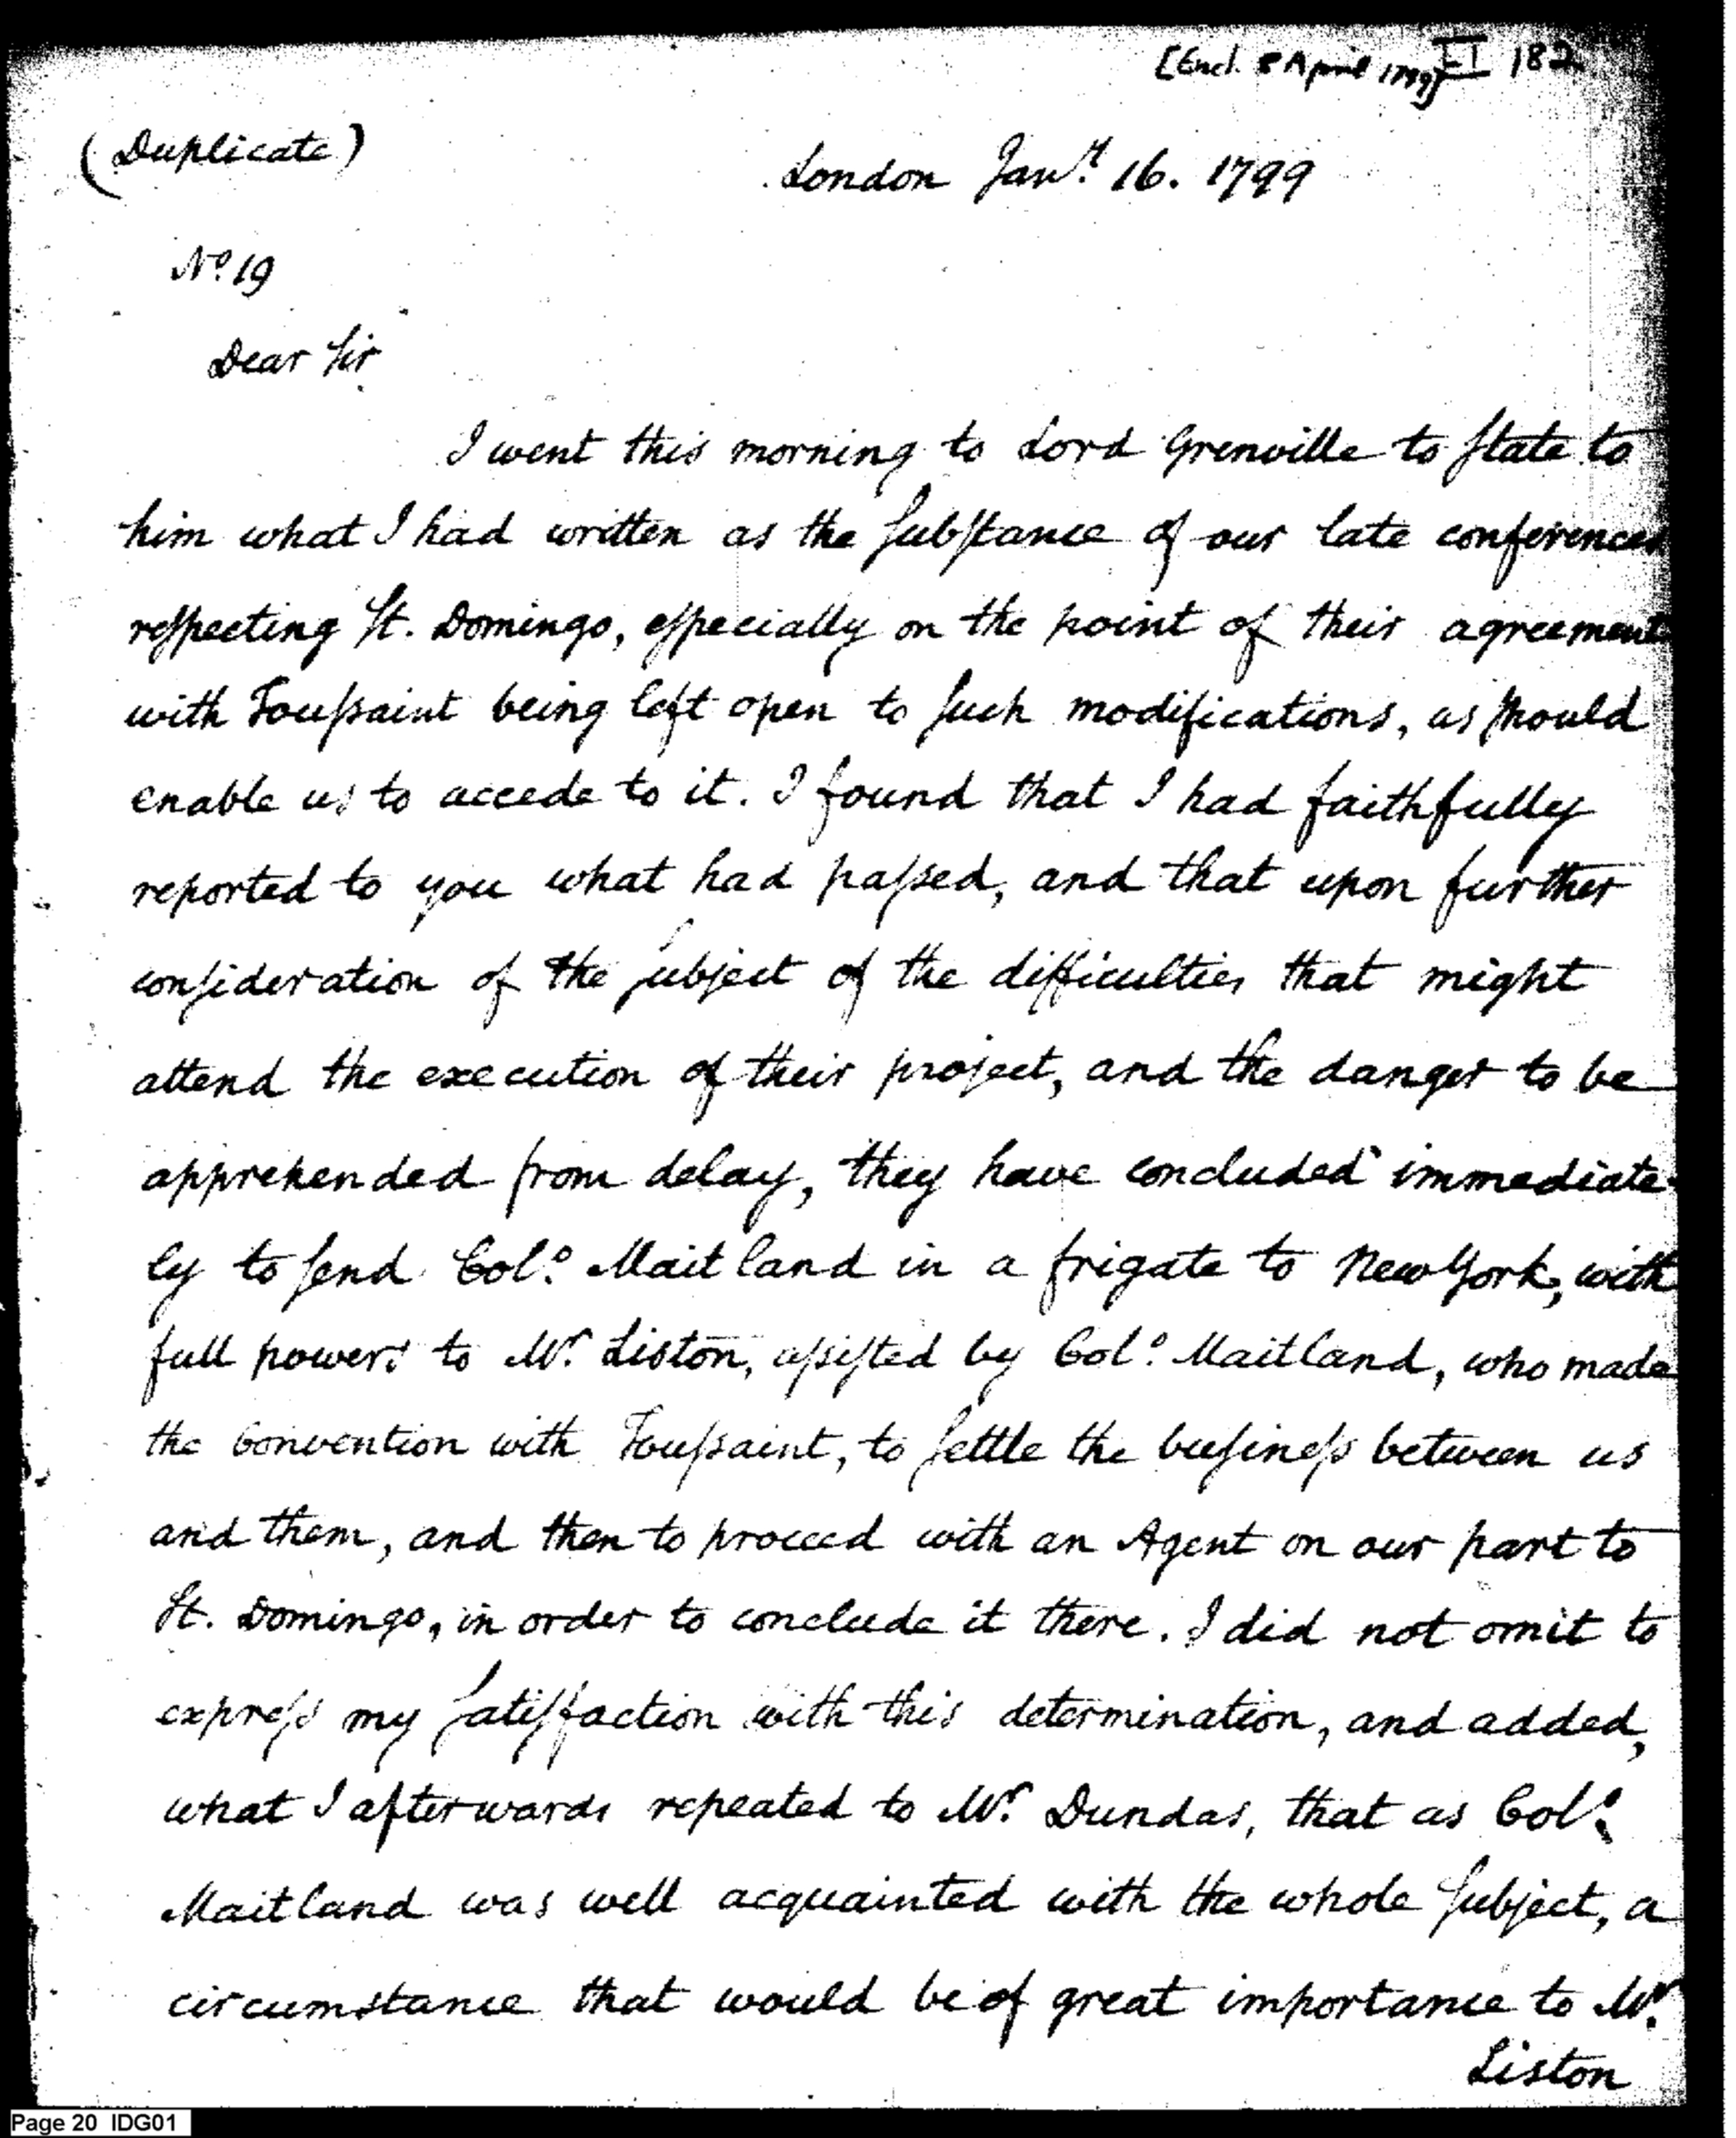 [Encl. 8 April 1799] II 182
(Duplicate)
London Jan.y 16. 1799
No. 19
Dear Sir
I went this morning to Lord Grenville to state to
him what I had written as the substance of our late conferences
respecting St. Domingo, especially on the point of their agreement
with Toussaint being left open to such modifications, as should
enable us to accede to it. I found that I had faithfully
reported to you what had passed, and that upon further
consideration of the subject of the difficulties that might
attend the execution of their project, and the danger to be
apprehended from delay, they have concluded immediate-
ly to send Col.o Maitland in a frigate to New York, with
full powers to Mr. Liston, assisted by Col.o Maitland, who made
the Convention with Toussaint, to settle the business between us
and them, and then to proceed with an Agent on our part to
St. Domingo, in order to conclude it there. I did not omit to
express my satisfaction with this determination, and added,
what I afterwards repeated to Mr. Dundas, that as Col.o
Maitland was well acquainted with the whole subject, a
circumstance that would be of great importance to Mr.
Liston
Page 20 IDG01